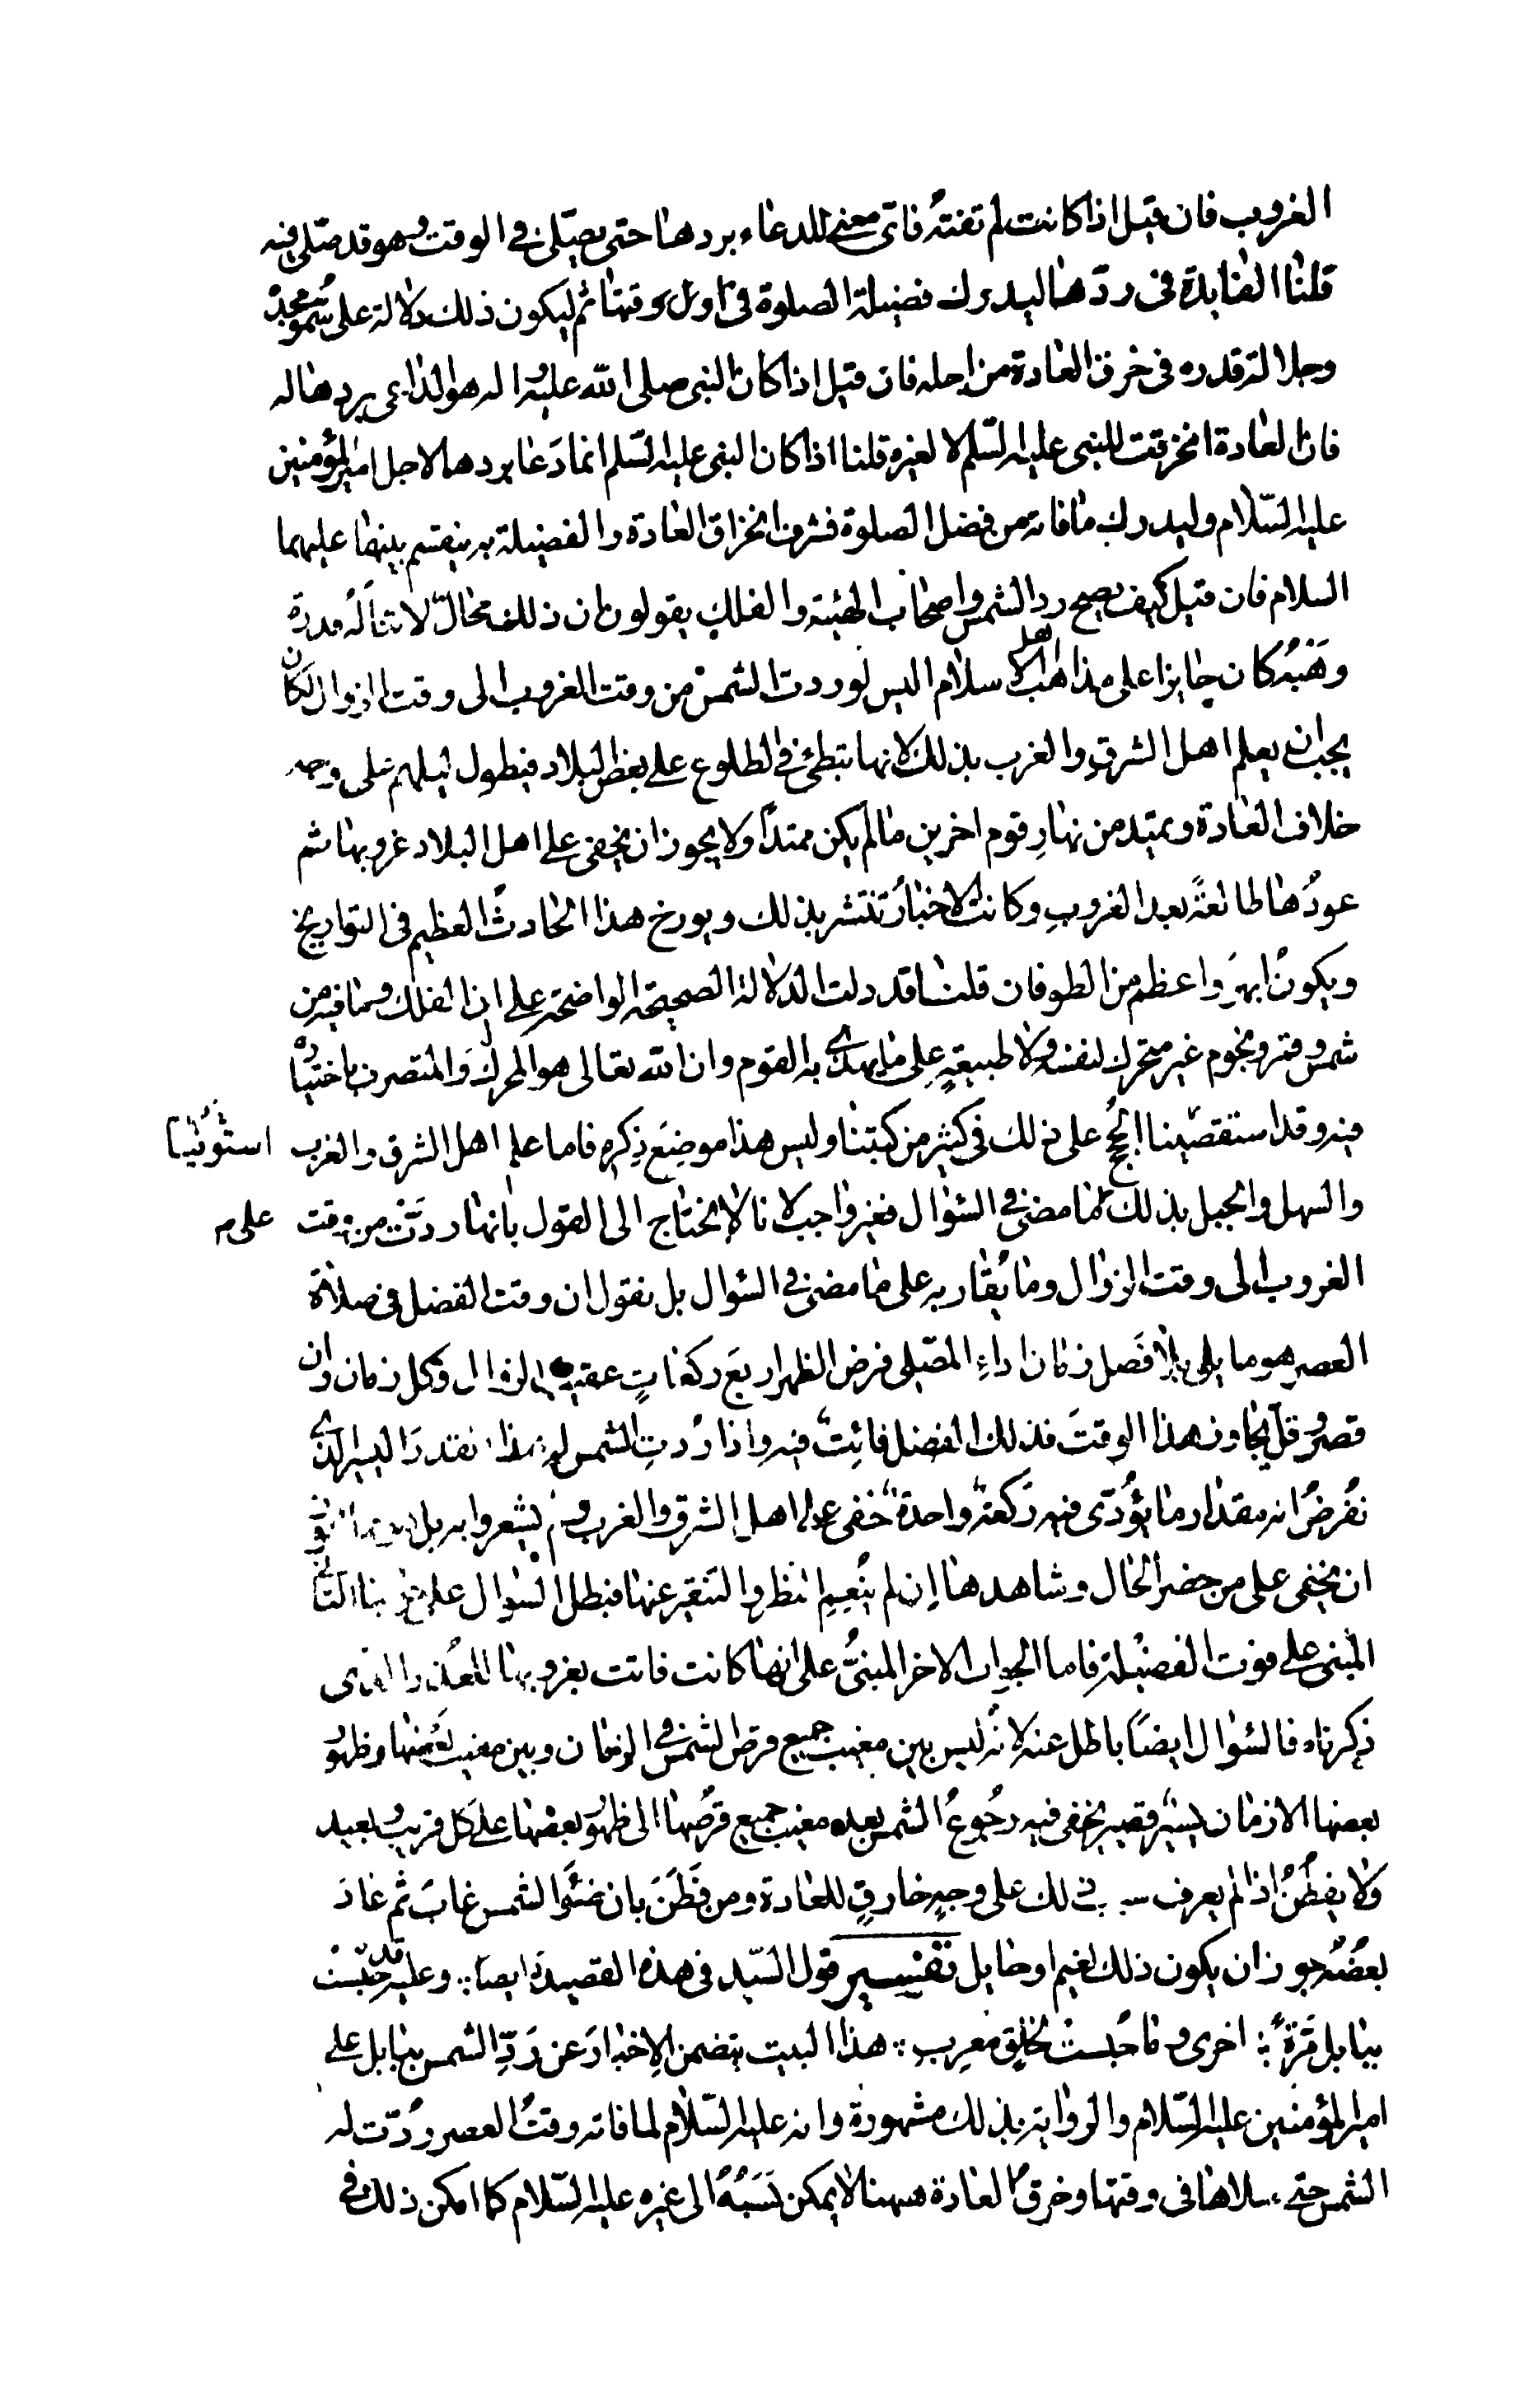 الغروب فان قيل اذا كانت لم تفتهُ فاىّ معنى للدعاء بردها حتى يصلّى فى الوقت وهو قد صلّى فيه
قلنا الفايدة فى ردّها ليدرك فضيلة الصلوة فى اول وقتها ثم ليكون ذلك دلالة على سُموّ مجدهْ
وجلالة قدره فى خرق العادة من اجله فان قيل اذا كان النبى صلى الله عليه واله هو الداعى بردها له
فان العادة انخرقت للنبى عليه السّلم لا لغيره قلنا اذا كان النبى عليه السّلم انما دَعا بردها لاجل امير المؤمنين
عليه السّلام وليدرك ما فاته من فضل الصلوة فشرف انخراق العادة والفضيلة به ينقسم بينهما عليهما
السلام فان قيل كيف يصح رد الشمس واصحاب الهئية والفلك يقولون ان ذلك محالٌ لا تنالُهُ قدرة
وهَبْهُ كان جايزا على مذاهب اهل الاسلام اليس لو ردت الشمسْ من وقت الغروب الى وقت الزوال لكان
يجب ان يعلم اهل الشرق والغرب بذلك لانها تبطئ فى الطلوع على بعض البلاد فيطول ليلهم على وجه
خلاف العادة ويمتد من نهارِ قوم اخرين ما لم يكن ممتدًا ولا يجوز ان يخفى على اهل البلاد غروبها ثم
عودُها طالعةً بعد الغروبِ وكانت الاخبارُ تنتشر بذلك ويورخ هذا الحادثُ العظيم فى التواريخ
ويكونُ ابهرَ واعظم من الطوفان قلنا قد دلت الدلالة الصحيحة الواضحة على ان الفلك وما فيه من
شمس وقمر ونجوم غير متحرك لنفسه ولا طبيعةٍ على ما يهذى به القوم وان الله تعالى هو المحرك وَالمتصرف باختياره
فيه وقد استقصينا الحججَ على ذلك فى كثير من كتبنا وليس هذا موضِعَ ذِكرِه فاما علم اهل الشرق والغرب
والسهل والجبل بذلك على ما مضى فى السّؤال فغير واجب لانا لا نحتاج الى القول بانها ردَتْ من وقت
الغروب الى وقت الزوال وما يُقاربه على ما مضى فى السؤال بل نقول ان وقت الفضل فى صلاة
العصر هو ما يلى بلا فَصلٍ زمان اداءِ المصّلى فرض الظهر اربعَ ركعاتٍ عقيب الزوال وكل زمان وان
قصرُ وقلّ يجاوز هذا الوقتَ فذلك الفضل فائِتٌ فيه واذا رُدتِ الشمس هذا القدرَ اليسير الذى
نفُرضُ انه مقدار ما يؤُدّى فيه رَكعة واحدةٌ خفى على اهل الشرق والغرب ولم يشعروا به بل
ان يخفى على من حضر الحال وشاهدها إن لم يُنْعِمِ النظر والتنقير عنها فبطل السّؤال على جوابنا الثانى
المبنى على فوت الفضيلة فاما الجواب الاخر المبنىُّ على انها كانت فاتت بغروبها للعُذر الذى
ذكرناه فالسّؤال ايضًا باطل عنه لانّه ليس بين مغيب جميع قرض الشمس فى الزمان وبين مغيب بعَضها وظهورُ
بعضها الا زمان يسيْرٌ قصير يخفى فيه رجُوعُ الشمس بعد مغيب جميع قرصُها الى ظهور بعضِها على كل قريب وبعيد
ولا يفطُنُ اذا لم يعرف سبب ذلك على وجهٍ خارقٍ للعادة ومن فَطَنَ بان ضَوْءَ الشمس غابَ ثم عَادَ
بعضُهُ جوز ان يكون ذلك لغيم او حايل تفسير قول السّيد فى هذه القصيدة ايضًا ؞ وعليه قد حُبِسَتْ
ببابل مَرّةً ؞ اخرى وما حُبسَتْ لخلقٍ معرِب ؞ هذا البيت يتضمن الاِخبارَ عن رَدِّ الشمس ببابل على
امير المؤمنين عليه السّلام والروَاية بذلك مشهورة وانه عليه السّلام لما فاته وقتُ العصر ردّت له
الشمس حتى صلاها فى وقتها وخرقُ العادة ههنا لا يمكن نَسَبُهُ الى غيره عليه السّلام كما امكن ذلك فى